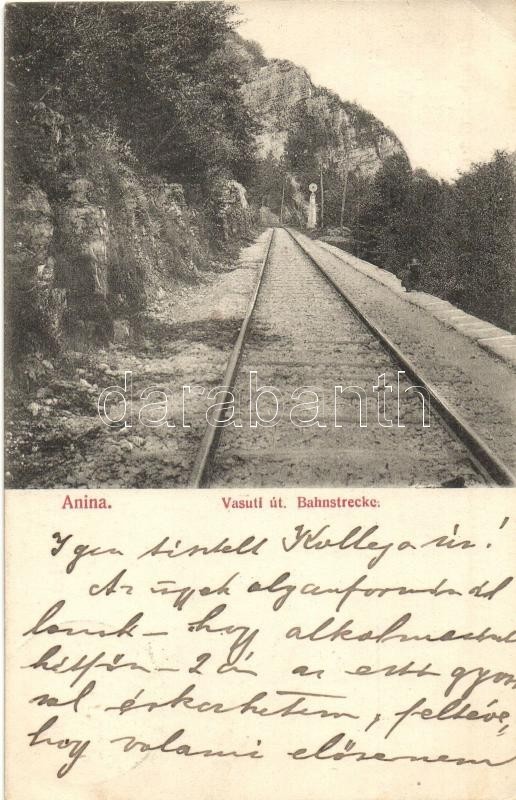 darabanth
Anina.
Vasuti út. Bahnstrecke.
Igen tisztelt Kollega úr!
Az ügyek olyanformán ál
lanak – hogy alkalmasint
hétfőn – 2 án az esti gyors
sal érkezhetem, feltéve,
hogy valami előre nem